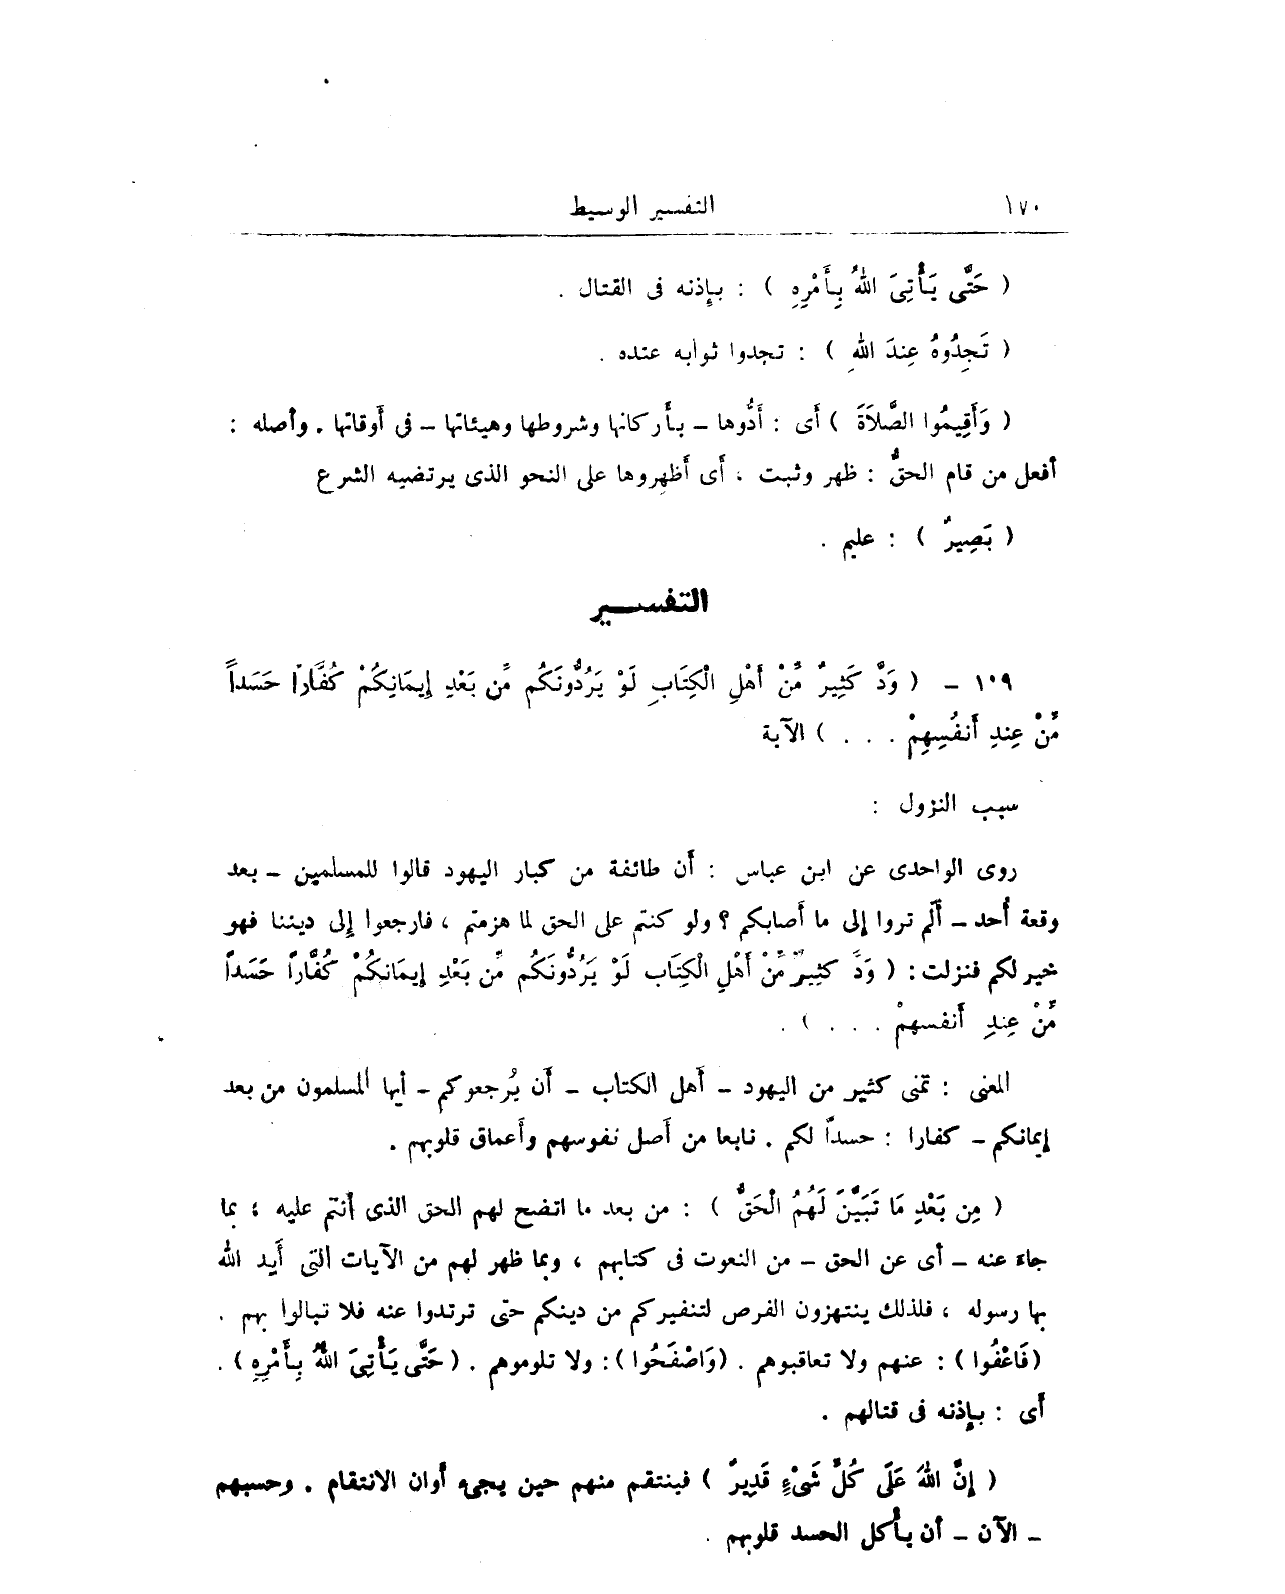 ١٧٠ التفسير الوسيط
( حَتَّى يَأْتِىَ اللهُ بِأَمْرِهِ ) : بإذنه فى القتال .
( تَجِدُوهُ عِندَ اللهِ ) : تجدوا ثوابه عنده .
( وَأَقِيمُوا الصَّلاَةَ ) أَى : أَدُّوها - بأَركانها وشروطها وهيئاتها - فى أَوقاتها . وأصله :
أفعل من قام الحقُّ : ظهر وثبت ، أَى أَظهروها على النحو الذى يرتضيه الشرع
( بَصِيرٌ ) : عليم .
التفسير
١٠٩ - ( وَدَّ كَثِيرٌ مِّنْ أَهْلِ الْكِتَابِ لَوْ يَرُدُّونَكُم مِّن بَعْدِ إِيمَانِكُمْ كُفَّارًا حَسَداً
مِّنْ عِندِ أَنفُسِهِمْ . . . ) الآية
سبب النزول :
روى الواحدى عن ابن عباس : أَن طائفة من كبار اليهود قالوا للمسلمين - بعد
وقعة أُحد - أَلم تروا إلى ما أَصابكم ؟ ولو كنتم على الحق لما هزمتم ، فارجعوا إلى ديننا فهو
خير لكم فنزلت : ( وَدَّ كثِيرٌ مِّنْ أَهْلِ الْكِتَاب لَوْ يَرُدُّونَكُم مِّن بَعْدِ إِيمَانِكُمْ كُفَّاراً حَسَداً
مِّنْ عِندِ أَنفسهمْ . . . ) .
المعنى : تمنى كثير من اليهود - أَهل الكتاب - أَن يُرجعوكم - أيها المسلمون من بعد
إيمانكم - كفارا : حسداً لكم . نابعا من أَصل نفوسهم وأَعماق قلوبهم .
( مِن بَعْدِ مَا تَبَيَّنَ لَهُمُ الْحَقُّ ) : من بعد ما اتضح لهم الحق الذى أنتم عليه ؛ بما
جاءَ عنه - أى عن الحق - من النعوت فى كتابهم ، وبما ظهر لهم من الآيات التى أَيد الله
بها رسوله ، فلذلك ينتهزون الفرص لتنفيركم من دينكم حتى ترتدوا عنه فلا تبالوا بهم .
(فَاعْفُوا ) : عنهم ولا تعاقبوهم . (وَاصْفَحُوا ) : ولا تلوموهم . ( حَتَّى يَأْتِىَ اللهُ بِأَمْرِهِ ) .
أَى : بإذنه فى قتالهم .
( إِنَّ اللهَ عَلَى كُلِّ شَىْءٍ قَدِيرٌ ) فينتقم منهم حين يجىء أوان الانتقام . وحسبهم
- الآن - أن يأْكل الحسد قلوبهم .